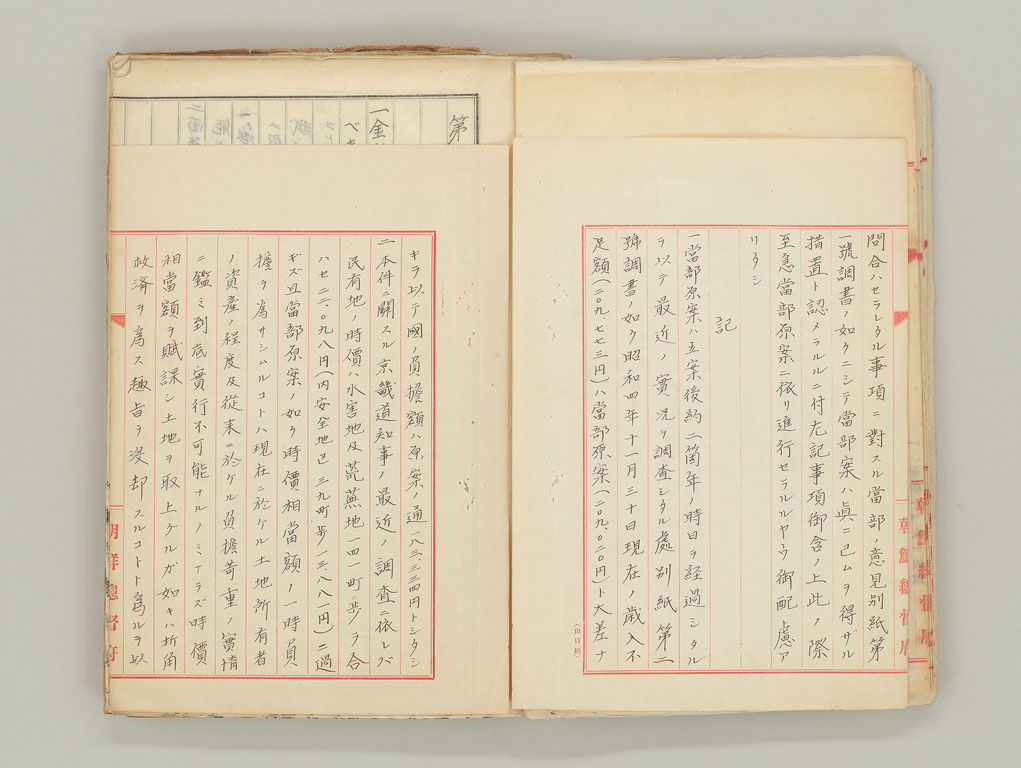 問合ハセラレタル事項ニ對スル當部ノ意見別紙第
一號調書ノ如クニシテ當部案ハ眞ニ已ムヲ得ザル
措置ト認メラルルニ付左記事項御含ノ上此ノ際
至急當部原案ニ依リ進行セラルルヤウ御配慮ア
リタシ
記
一當部原案ハ五案後約二箇年ノ時日ヲ経過シタル
ヲ以テ最近ノ實況ヲ調査シタル處別紙第二
號調書ノ如ク昭和四年十一月三十日現在ノ歳入不
足額(二〇九、七七三円)ハ當部原案(二〇九、〇二〇円)ト大差ナ
キヲ以テ國ノ負擔額ハ原案ノ通一八三、三三四円トシタシ
二本件ニ關スル京畿道知事ノ最近ノ調査ニ依レバ
民有地ノ時價ハ水害地及荒蕪地一四一町歩ヲ合
ハセ二二、〇九八円(内安全地已三九町歩一三、八八一円)ニ過
ギズ且當部原案ノ如ク時價相當額ノ一時負
擔ヲ為サシムルコトハ現在ニ於ケル土地所有者
ノ資産ノ程度及從来ニ於ケル負擔苛重ノ實情
ニ鑑ミ到底實行不可能ナルノミナラズ時價
相當額ヲ賦課シ土地ヲ取上グルガ如キハ折角
救済ヲ為ス趣旨ヲ没却スルコトト為ルヲ以
朝鮮總督府
朝鮮總督府
第
一金
べ